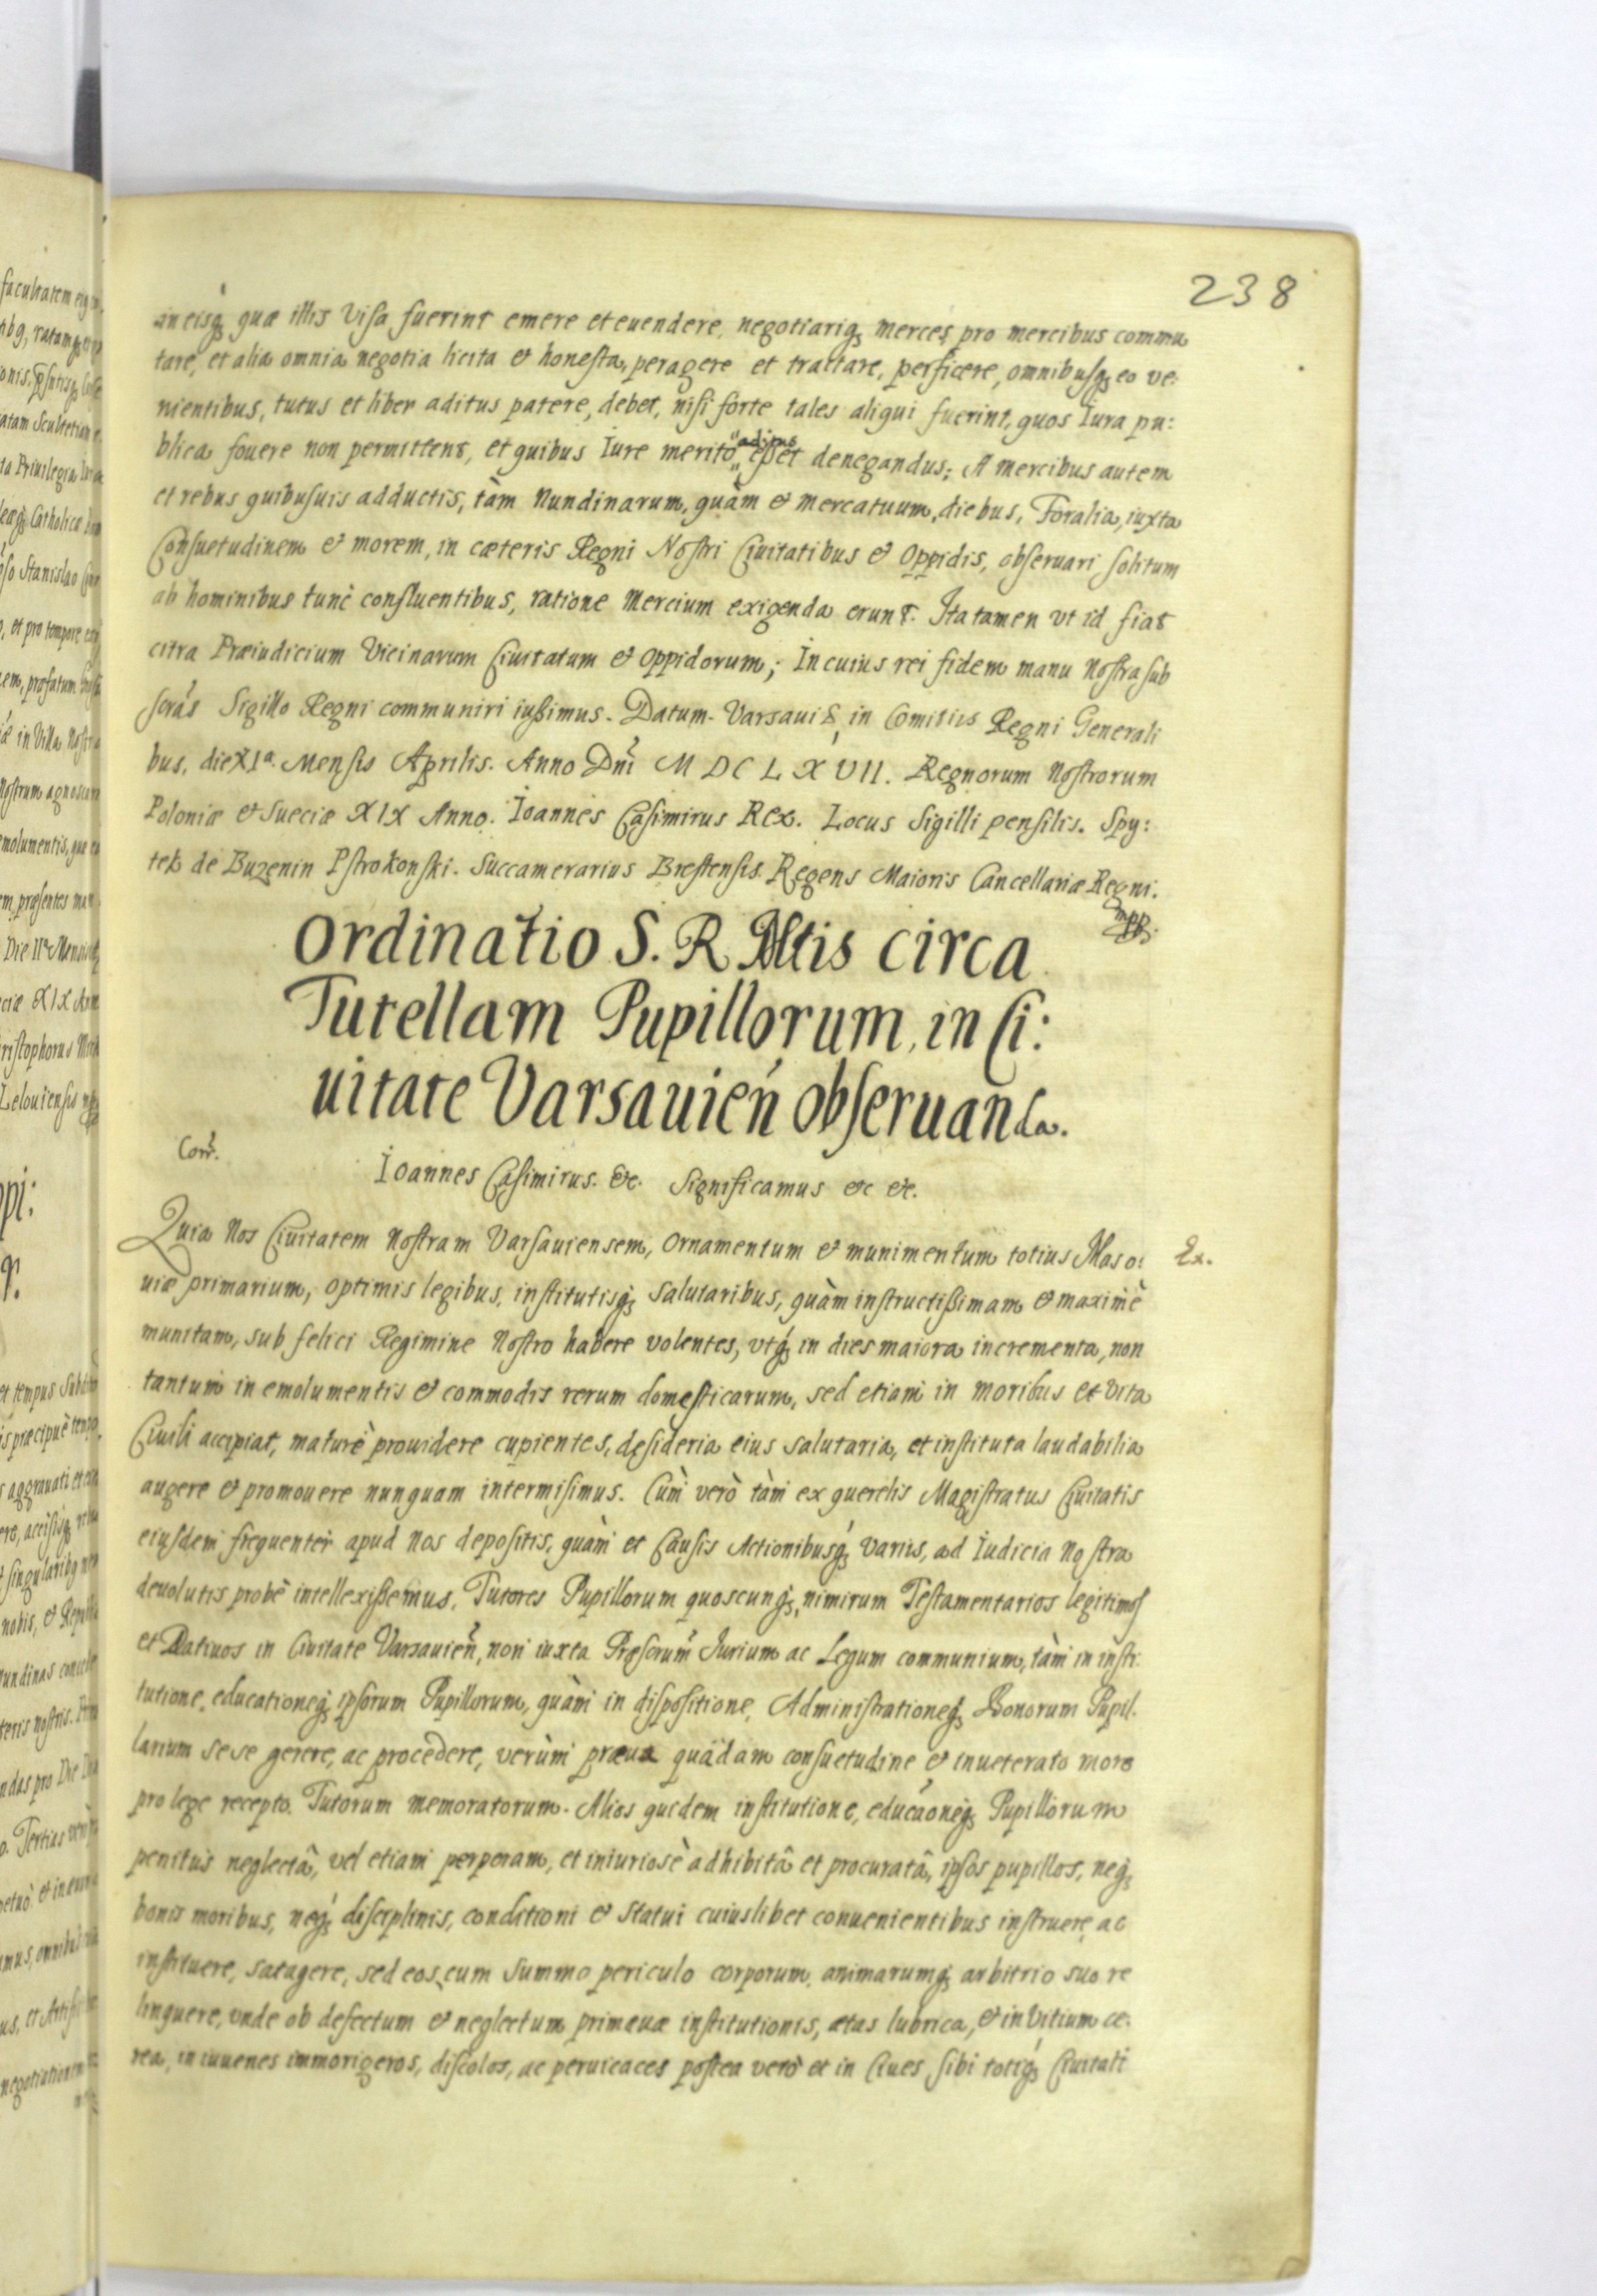 238
in eisq́ quæ illis Visa fuerint emere et euendere, negotiariq́ merces pro mercibus commu
tare, et alia omnia negotia licita et honesta, peragere et tractare, perficere, omnibusq́ eo ve:
nientibus, tutus et liber aditus patere, debet, nisi forte tales aliqui fuerint, quos Iura pu:
blica fouere non permittens, et quibus Iure merito "aditus" esset denegandus; A mercibus autem
et rebus quibusuis adductis, tàm Nundinarum, quàm et mercatuum, diebus, Foralia, iuxta
Consuetudinem et morem, in cæteris Regni Nostri Ciuitatibus et Oppidis, obseruari solitum
ab hominibus tunc confluentibus, ratione Mercium exigenda erunt. Ita tamen vt id fiat
citra Præiudicium Vicinarum Ciuitatum et Oppidorum; In cuius rei fidem manu Nostra sub
scrás Sigillo Regni communiri iussimus. Datum Varsauiæ, in Comitiis Regni Generali
bus, die XIa. Mensis Aprilis. Anno Dni M DC L X VII. Regnorum Nostrorum
Poloniæ et Sueciæ XIX Anno. Ioannes Casimirus Rex. Locus Sigilli pensilis. Spy:
tek de Buzenin Pstrokonski. Succamerarius Brestensis. Regens Maioris Cancellariæ Regni.
mpp.
Ordinatio S. R Mtis circa
Tutellam Pupillorum, in Ci:
uitate Varsauień obseruanda.
Corr.
Ioannes Casimirus. &c. Significamus &c &c.
Quia Nos Ciuitatem Nostram Varsauiensem, Ornamentum et munimentum totius Maso: Ex.
uiæ primarium, optimis legibus, institutisq́ salutaribus, quàm instructissimam et maximè
munitam, sub felici Regimine Nostro habere volentes, vtq́ in dies maiora incrementa, non
tantum in emolumentis et commodis rerum domesticarum, sed etiam in moribus et vita
Ciuili accipiat, maturè prouidere cupientes, desideria eius salutaria, et instituta laudabilia
augere et promouere nunquam intermisimus. Cùm verò tàm ex querelis Magistratus Ciuitatis
eiusdem frequenter apud Nos depositis, quàm et Causis Actionibusq́ Variis, ad Iudicia Nostra
deuolutis probè intellexissemus, Tutores Pupillorum quoscunq́, nimirum Testamentarios legitimos
et Datiuos in Ciuitate Varsauień, non iuxta Præscrum Iurium ac Legum communium, tàm in insti:
tutione, educationeq́ ipsorum Pupillorum, quàm in dispositione, Administrationeq́ Bonorum Pupil:
larium sese gerere, ac procedere, verùm praua quâdam consuetudine et inueterato more
pro lege recepto Tutorum memoratorum. Alios quidem institutione, educaoneq́ Pupillorum
penitus neglectâ, vel etiam perperam, et iniuriosè adhibitâ et procuratâ, ipsos pupillos, neq́
bonis moribus, neq́ disciplinis, conditioni et Statui cuiuslibet conuenientibus instruere, ac
instituere, satagere, sed eos, cum summo periculo corporum, animarumq́ arbitrio suo re
linquere, vnde ob defectum et neglectum primæuæ institutionis, ætas lubrica, et in Vitium ce:
rea, in iuuenes immorigeros, discolos, ac peruicaces postea verò et in Ciues sibi totiq́ Ciuitati